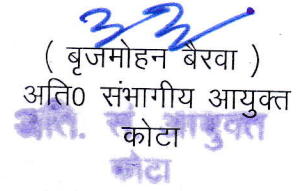 ( बृजमोहन बैरवा )
अति0 संभागीय आयुक्त
कोटा
अति. सं. आयुक्त
कोटा